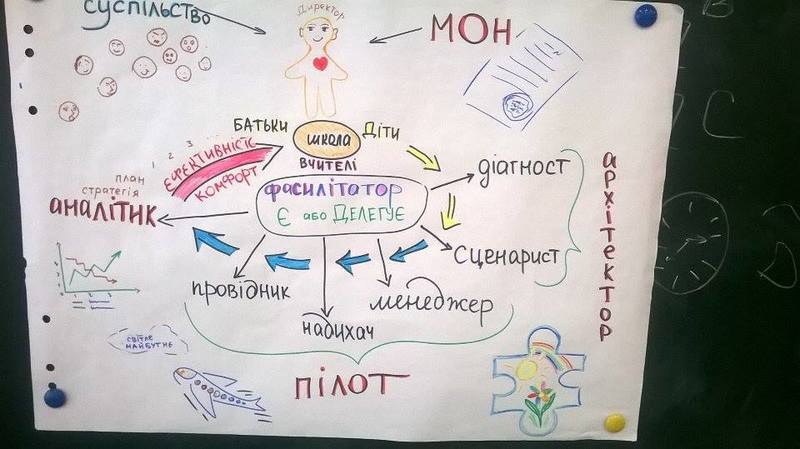 суспільство
Директор
МОН
БАТЬКИ
школа
Діти
ВЧИТЕЛІ
1 2 3
ЕФЕКТИВНІСТЬ
КОМФОРТ
план
стратегія
аналітик
фасилітатор
Є або ДЕЛЕГУЄ
діагност
Сценарист
архітектор
провідник
надихач
менеджер
ПІЛОТ
світле
майбутнє
В
С